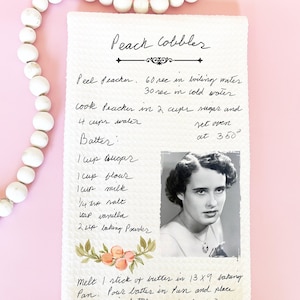 Peach Cobbler
Peel Peaches. 60 sec in boiling water
30 sec in cold water
Cook Peaches in 2 cups sugar and
4 cups water
set oven
at 350°
Batter:
1 cup sugar
1 cup flour
1 cup milk
salt
vanilla
2 baking Powder
Melt 1 stick of butter in 13 x 9 baking
Pan. Pour batter in Pan and place